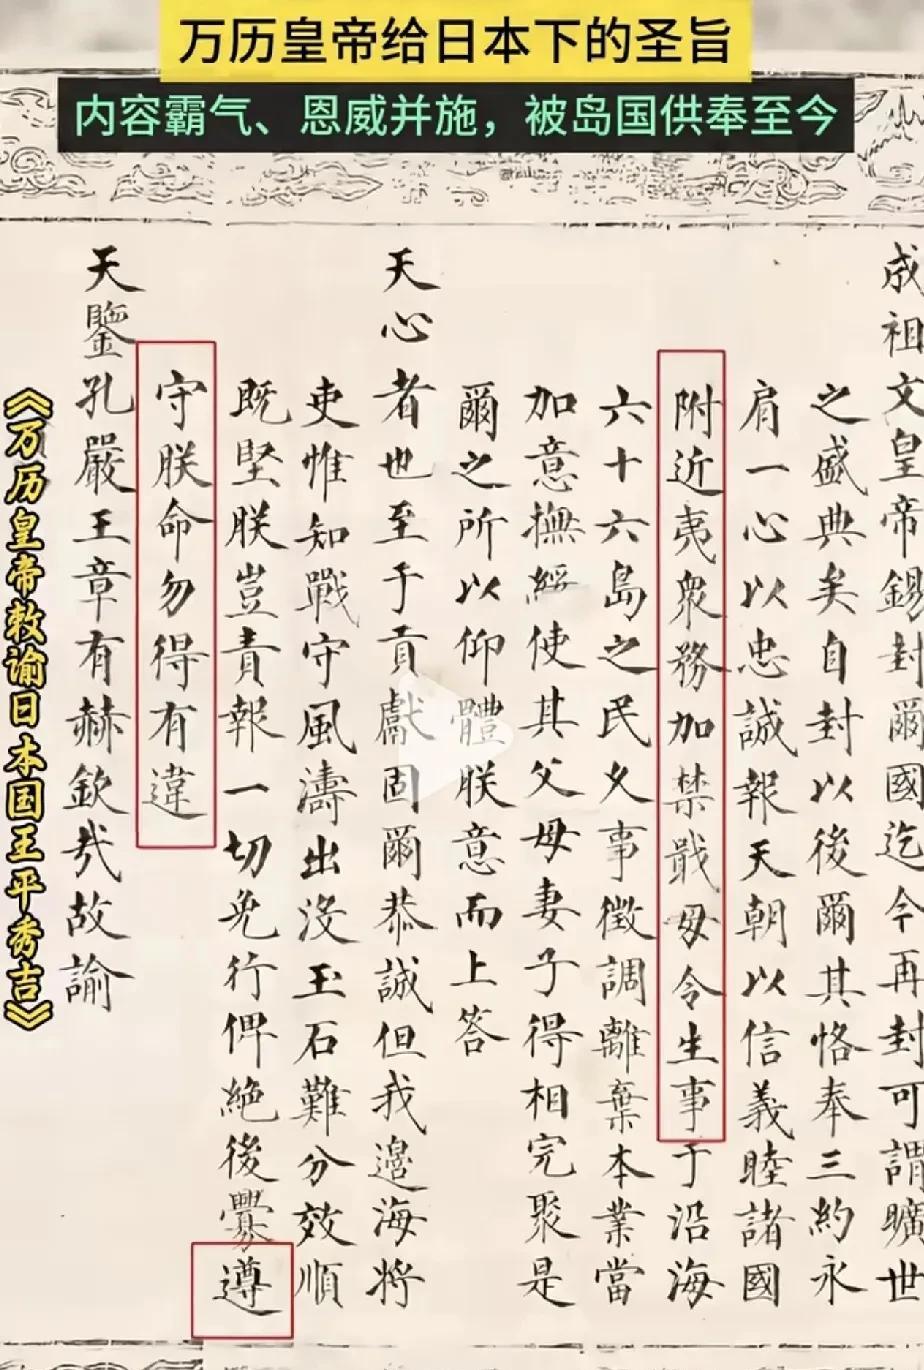 万历皇帝给日本下的圣旨
内容霸气、恩威并施，被岛国供奉至今
成祖文皇帝錫封爾國迄今再封可謂曠世
之盛典矣自封以後爾其恪奉三約永
肩一心以忠誠報天朝以信義睦諸國
附近夷衆務加禁戢毋令生事于沿海
六十六島之民久事徵調離棄本業當
加意撫綏使其父母妻子得相完聚是
爾之所以仰體朕意而上答
天心者也至于貢獻固爾恭誠但我邊海將
吏惟知戰守風濤出沒玉石難分效順
既堅朕豈責報一切免行俾絕後釁遵
守朕命勿得有違
天鑒孔嚴王章有赫欽哉故諭
《万历皇帝敕谕日本国王平秀吉》